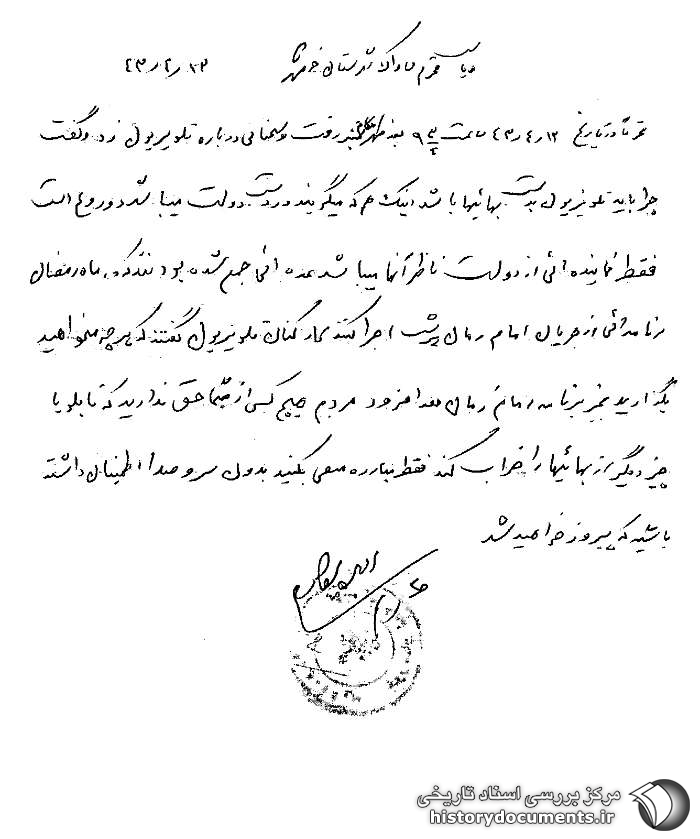 ریاست محترم ساواک شهرستان خرمشهر ۴۳٫۴٫۱۳
محترماً در تاریخ ۴۳٫۴٫۱۲ ساعت ۹ بعدازظهر رفت و سخنانی درباره تلویزیون زد و گفت
چرا باید تلویزیون بدست بهائیها باشد اینک هم که میگویند در دست دولت میباشد دروغ است
فقط نماینده ائی از دولت ناظر آنها میباشد عده ائی جمع شده بودند که ماه رمضان
برنامه ائی از جریان امام زمان اجرا کنند کارکنان تلویزیون گفتند که هر چه میخواهید
بگذارید بجز برنامه امام زمان بعد افزود مردم هیچ کس از شما حق ندارید که تابلو یا
چیز دیگر از بهائیها را خراب کند فقط مبارزه سعی بکنید بدون سر و صدا اطمینان داشته
باشید که پیروز خواهید شد
مرکز بررسی اسناد تاریخی
historydocuments.ir